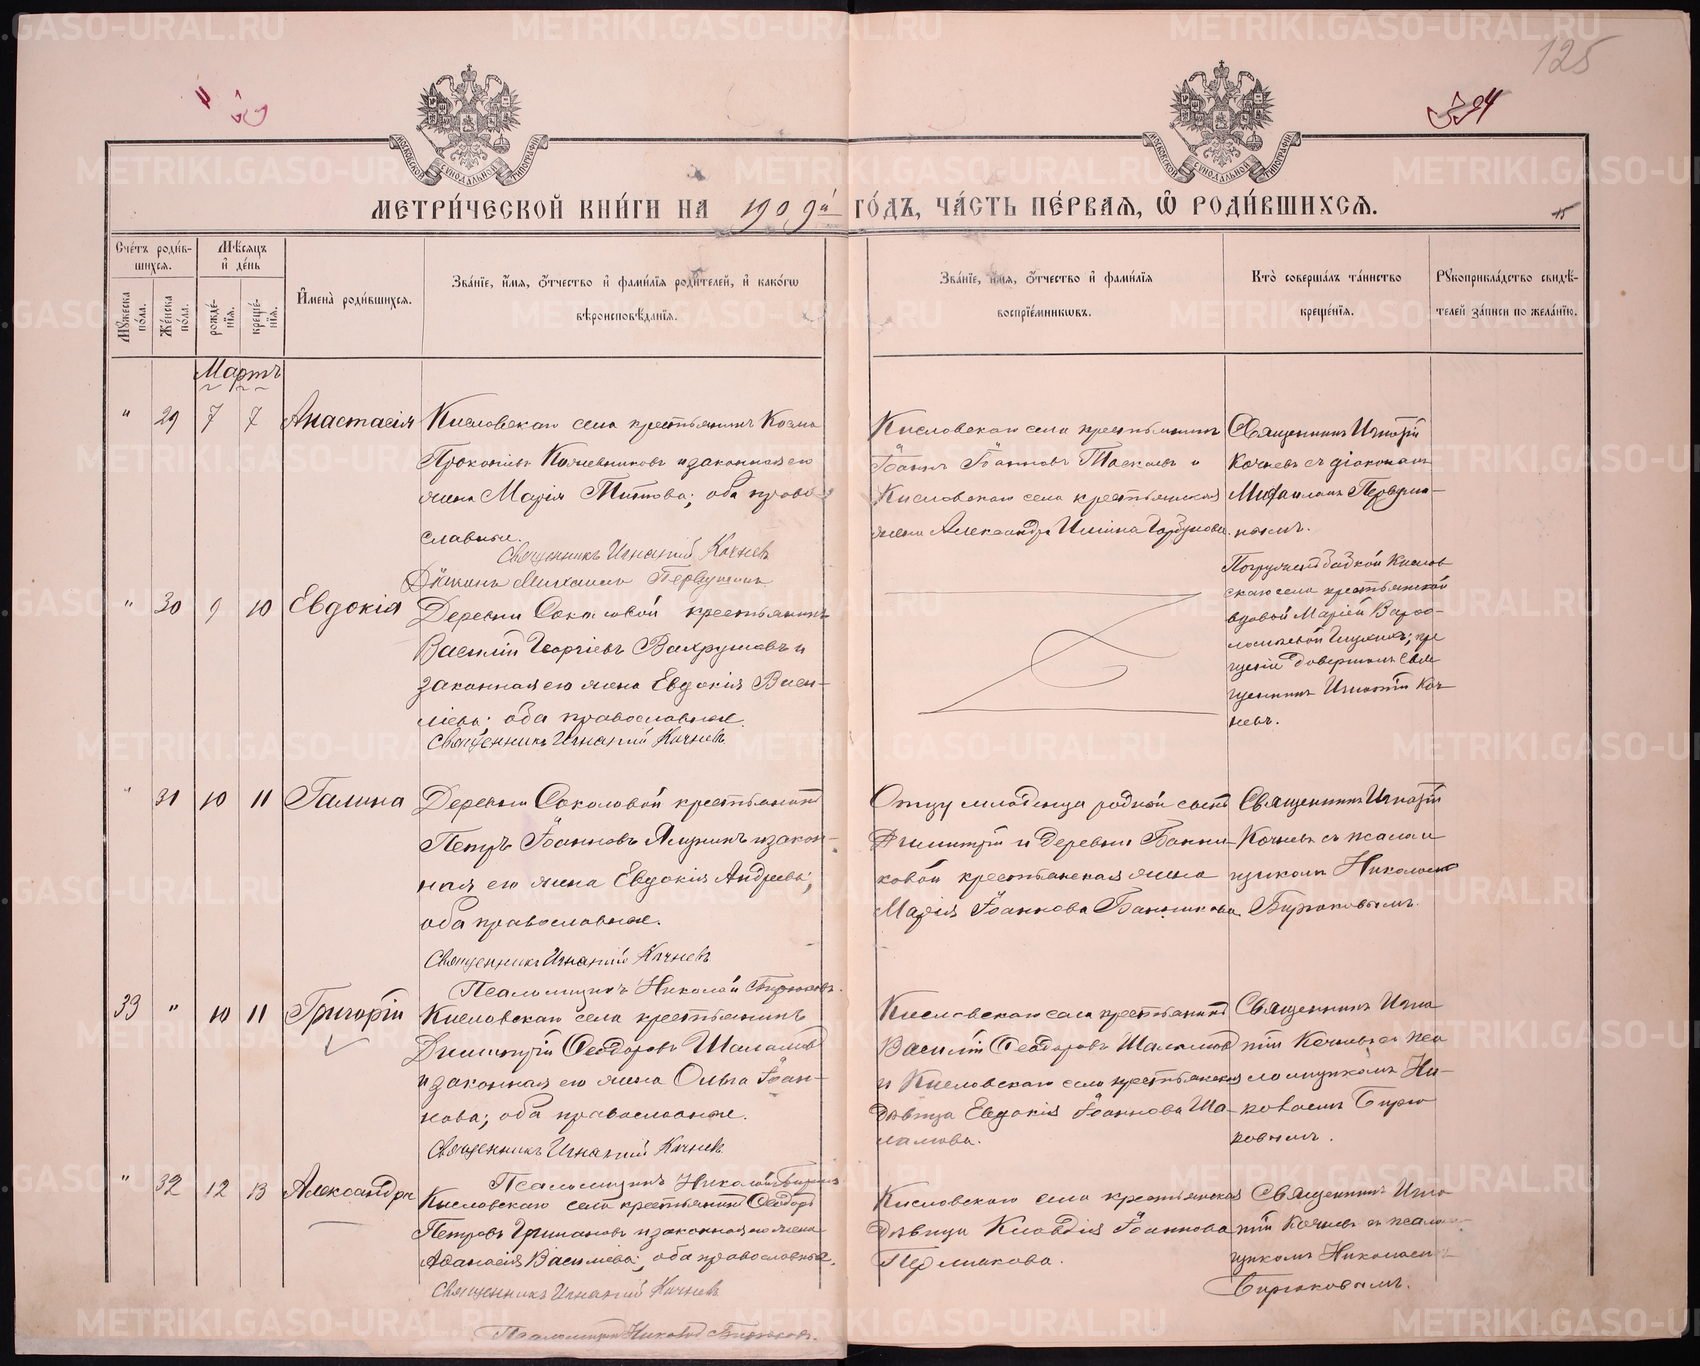 125
394
МЕТРИ́ЧЕСКОЙ КНИ́ГИ НА 1909й ГО́ДЪ, ЧА́СТЬ ПЕ́РВАЯ, Ѿ РОДИ́ВШИХСЯ.
15
Сче́тъ роди́в-
шихся.
Мꙋжеска по́ла.
Же́нска по́ла.
Мѣ́сяцъ и де́нь
рожде́-
нїя.
креще́-
нїя.
И҆мена̀ роди́вшихся.
Зва́нїе, и҆́мя, ѻ҆́тчество и҆ фамилїя роди́телей, и҆ како́гѡ
вѣроисповѣ́данїя.
Зва́нїе, и҆́мя, ѻ҆́тчество и҆ фами́лїя
воспрїе́мникѡвъ.
Кто̀ соверша́лъ та́инство
креще́нїя.
Рꙋкоприкла́дство свидѣ́-
телей за́писи по жела́нїю.
Мартъ
" 29 7 7 Анастасія
Кисловскаго села крестьянинъ Козма
Прокопіевъ Кочневниковъ и законная его
жена Марія Титова; оба право-
славные.
Священникъ Игнатій Кочневъ
Діаконъ Михаилъ Первушинъ
Кисловскаго села крестьянинъ
Іоаннъ Іоанновъ и
Кисловскаго села крестьянская
жена Александра Ильина
Священникъ Игнатій
Кочневъ съ діакономъ
Михаиломъ Первуши-
нымъ.
" 30 9 10 Евдокія
Деревни Соколовой крестьянинъ
Василій Георгіевъ Вахрушевъ и
законная его жена Евдокія Васи-
ліева; оба православные.
Священникъ Игнатій Кочневъ
Погружена бабкой Кислов-
скаго села крестьянской
вдовой Маріей Варѳо-
ломеевой
довершилъ Свя-
щенникъ Игнатій Коч-
невъ.
" 31 10 11 Галина
Деревни Соколовой крестьянинъ
Петръ Іоанновъ и закон-
ная его жена Евдокія Андреева;
оба православные.
Священникъ Игнатій Кочневъ
Псаломщикъ Николай Бирюковъ.
Отцу младенца родной братъ
Димитрій и деревни Банни-
ковой крестьянская жена
Марія Іоаннова Банникова.
Священникъ Игнатій
Кочневъ съ псалом-
щикомъ Николаемъ
Бирюковымъ.
33 " 10 11 Григорій
Кисловскаго села крестьянинъ
Димитрій Ѳеодоровъ Шаламовъ
и законная его жена Ольга Іоан-
нова; оба православные.
Священникъ Игнатій Кочневъ
Псаломщикъ Николай Бирюковъ
Кисловскаго села крестьянинъ
Василій Ѳеодоровъ Шаламовъ
и Кисловскаго села крестьянская
дѣвица Евдокія Іоаннова Ша-
ламова.
Священникъ Игна-
тій Кочневъ съ пса-
ломщикомъ Ни-
колаемъ Бирю-
ковымъ.
" 32 12 13 Александра
Кисловскаго села крестьянинъ Ѳеодоръ
Петровъ и законная его жена
Аѳанасія Василіева; оба православные.
Священникъ Игнатій Кочневъ
Псаломщикъ Николай Бирюковъ.
Кисловскаго села крестьянская
дѣвица Клавдія Іоаннова
Пермякова.
Священникъ Игна-
тій Кочневъ съ псалом-
щикомъ Николаемъ
Бирюковымъ.
METRIKI.GASO-URAL.RU